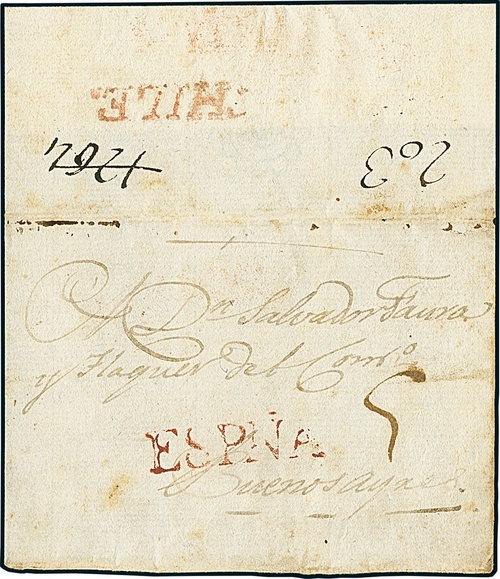 CHILE
203
A Dn Salvador Faura
y Flaquer del Comro
5
ESPÑA
Buenos ayres.